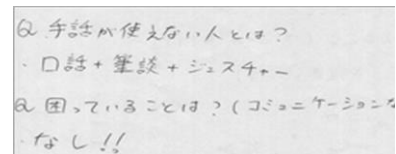 Q 手話が使えない人とは?
・口話+筆談+ジェスチャー
Q 困っていることは?(コミュニケーションな
・なし!!